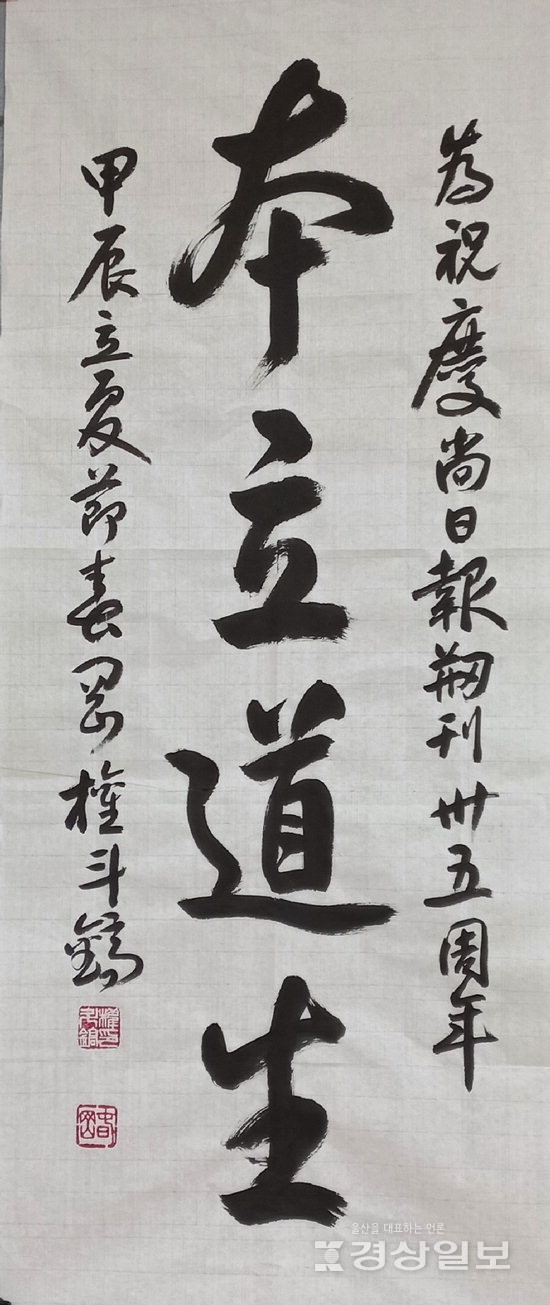 為祝慶尚日報刱刊卅五周年
本立道生
甲辰立夏節春岡權斗鎬
울산을 대표하는 언론
경상일보